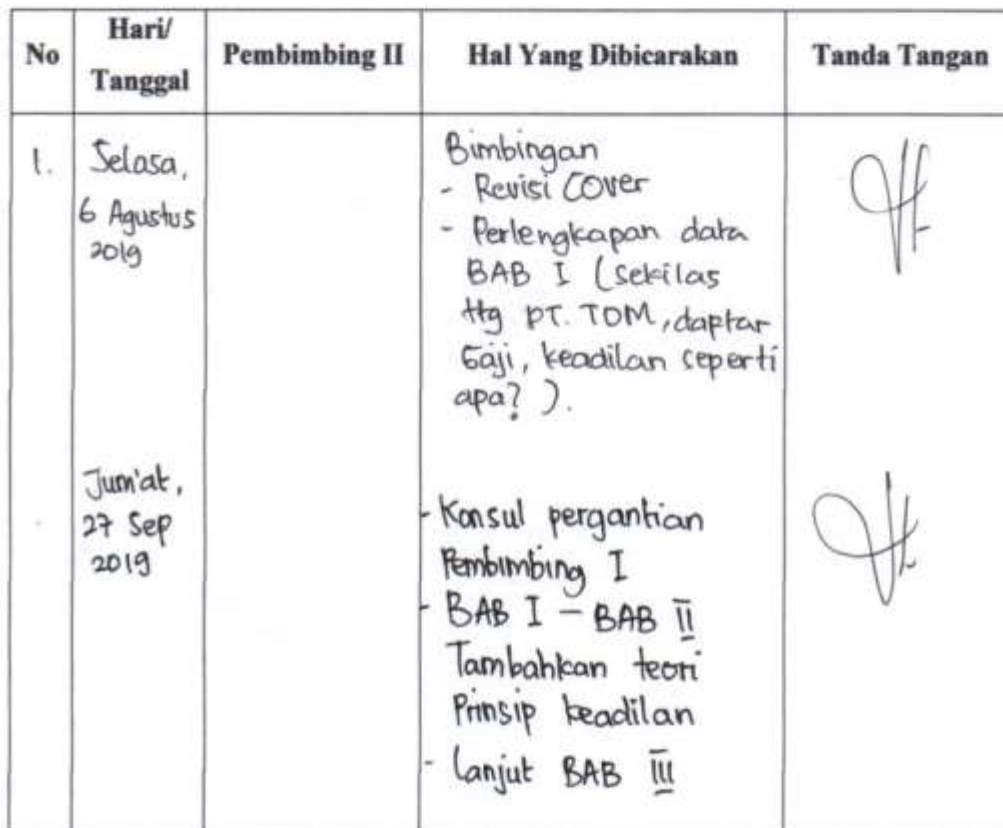 No
Hari/
Tanggal
Pembimbing II
Hal Yang Dibicarakan
Tanda Tangan
1.
Selasa,
6 Agustus
2019
Bimbingan
- Revisi Cover
- Perlengkapan data
BAB I (sekilas
ttg PT. TDM, daptar
Gaji, keadilan seperti
apa? ).
Jum'at,
27 Sep
2019
- Konsul pergantian
Pembimbing I
- BAB I - BAB II
Tambahkan teori
Prinsip keadilan
- Lanjut BAB III